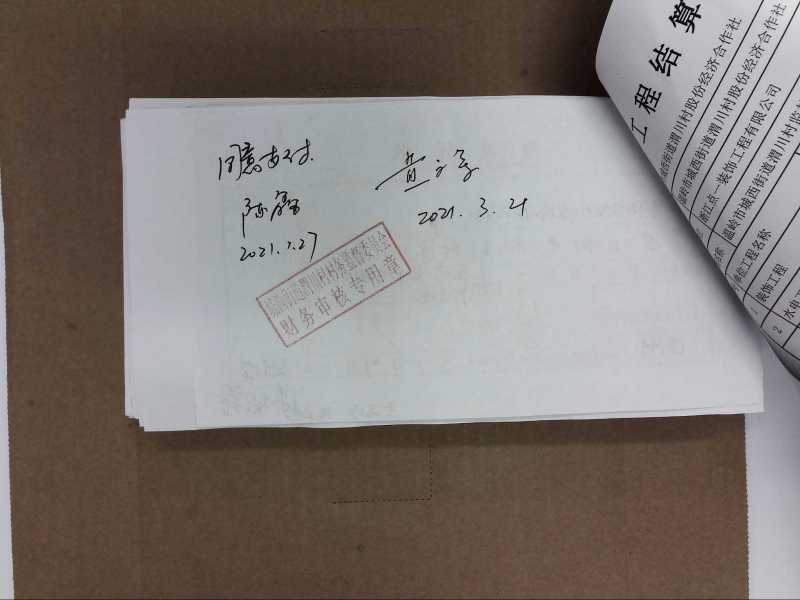 同意支付
陈鑫
2021.2.27
2021.3.21
城西街道渭川村村务监督委员会
财务审核专用章
工程结算
温岭市城西街道渭川村股份经济合作社
温岭市城西街道渭川村股份经济合作社
浙江点一装饰工程有限公司
温岭市城西街道渭川村
单位工程名称
1 装饰工程
2 水电